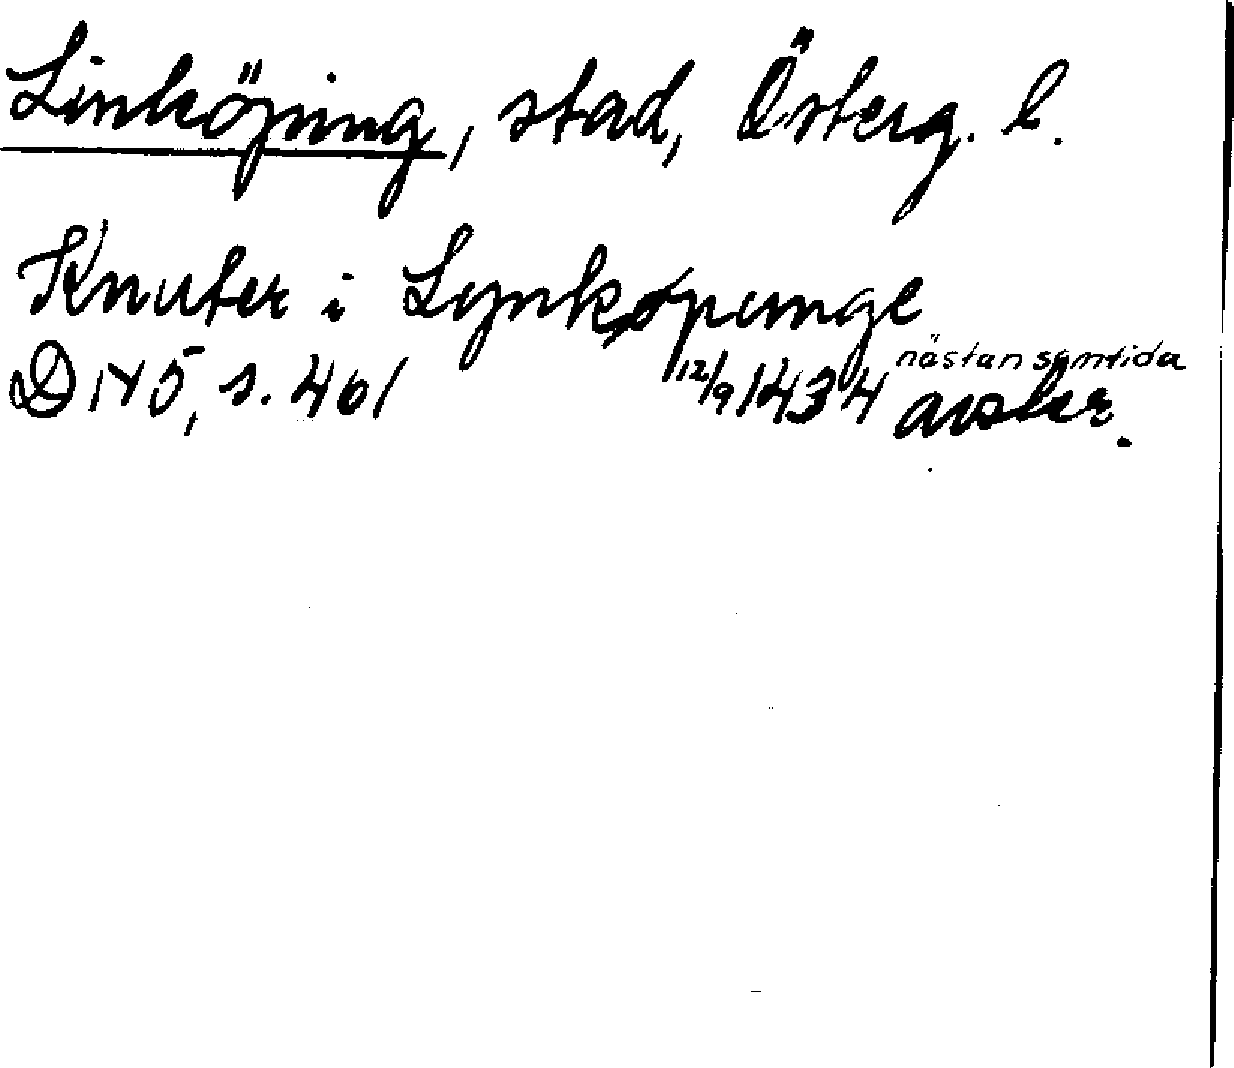 Linköping, stad, Österg. l.
Knuter i Lynkøpunge
D 145, s. 401 12/9 1434 nästan samtida avskr.